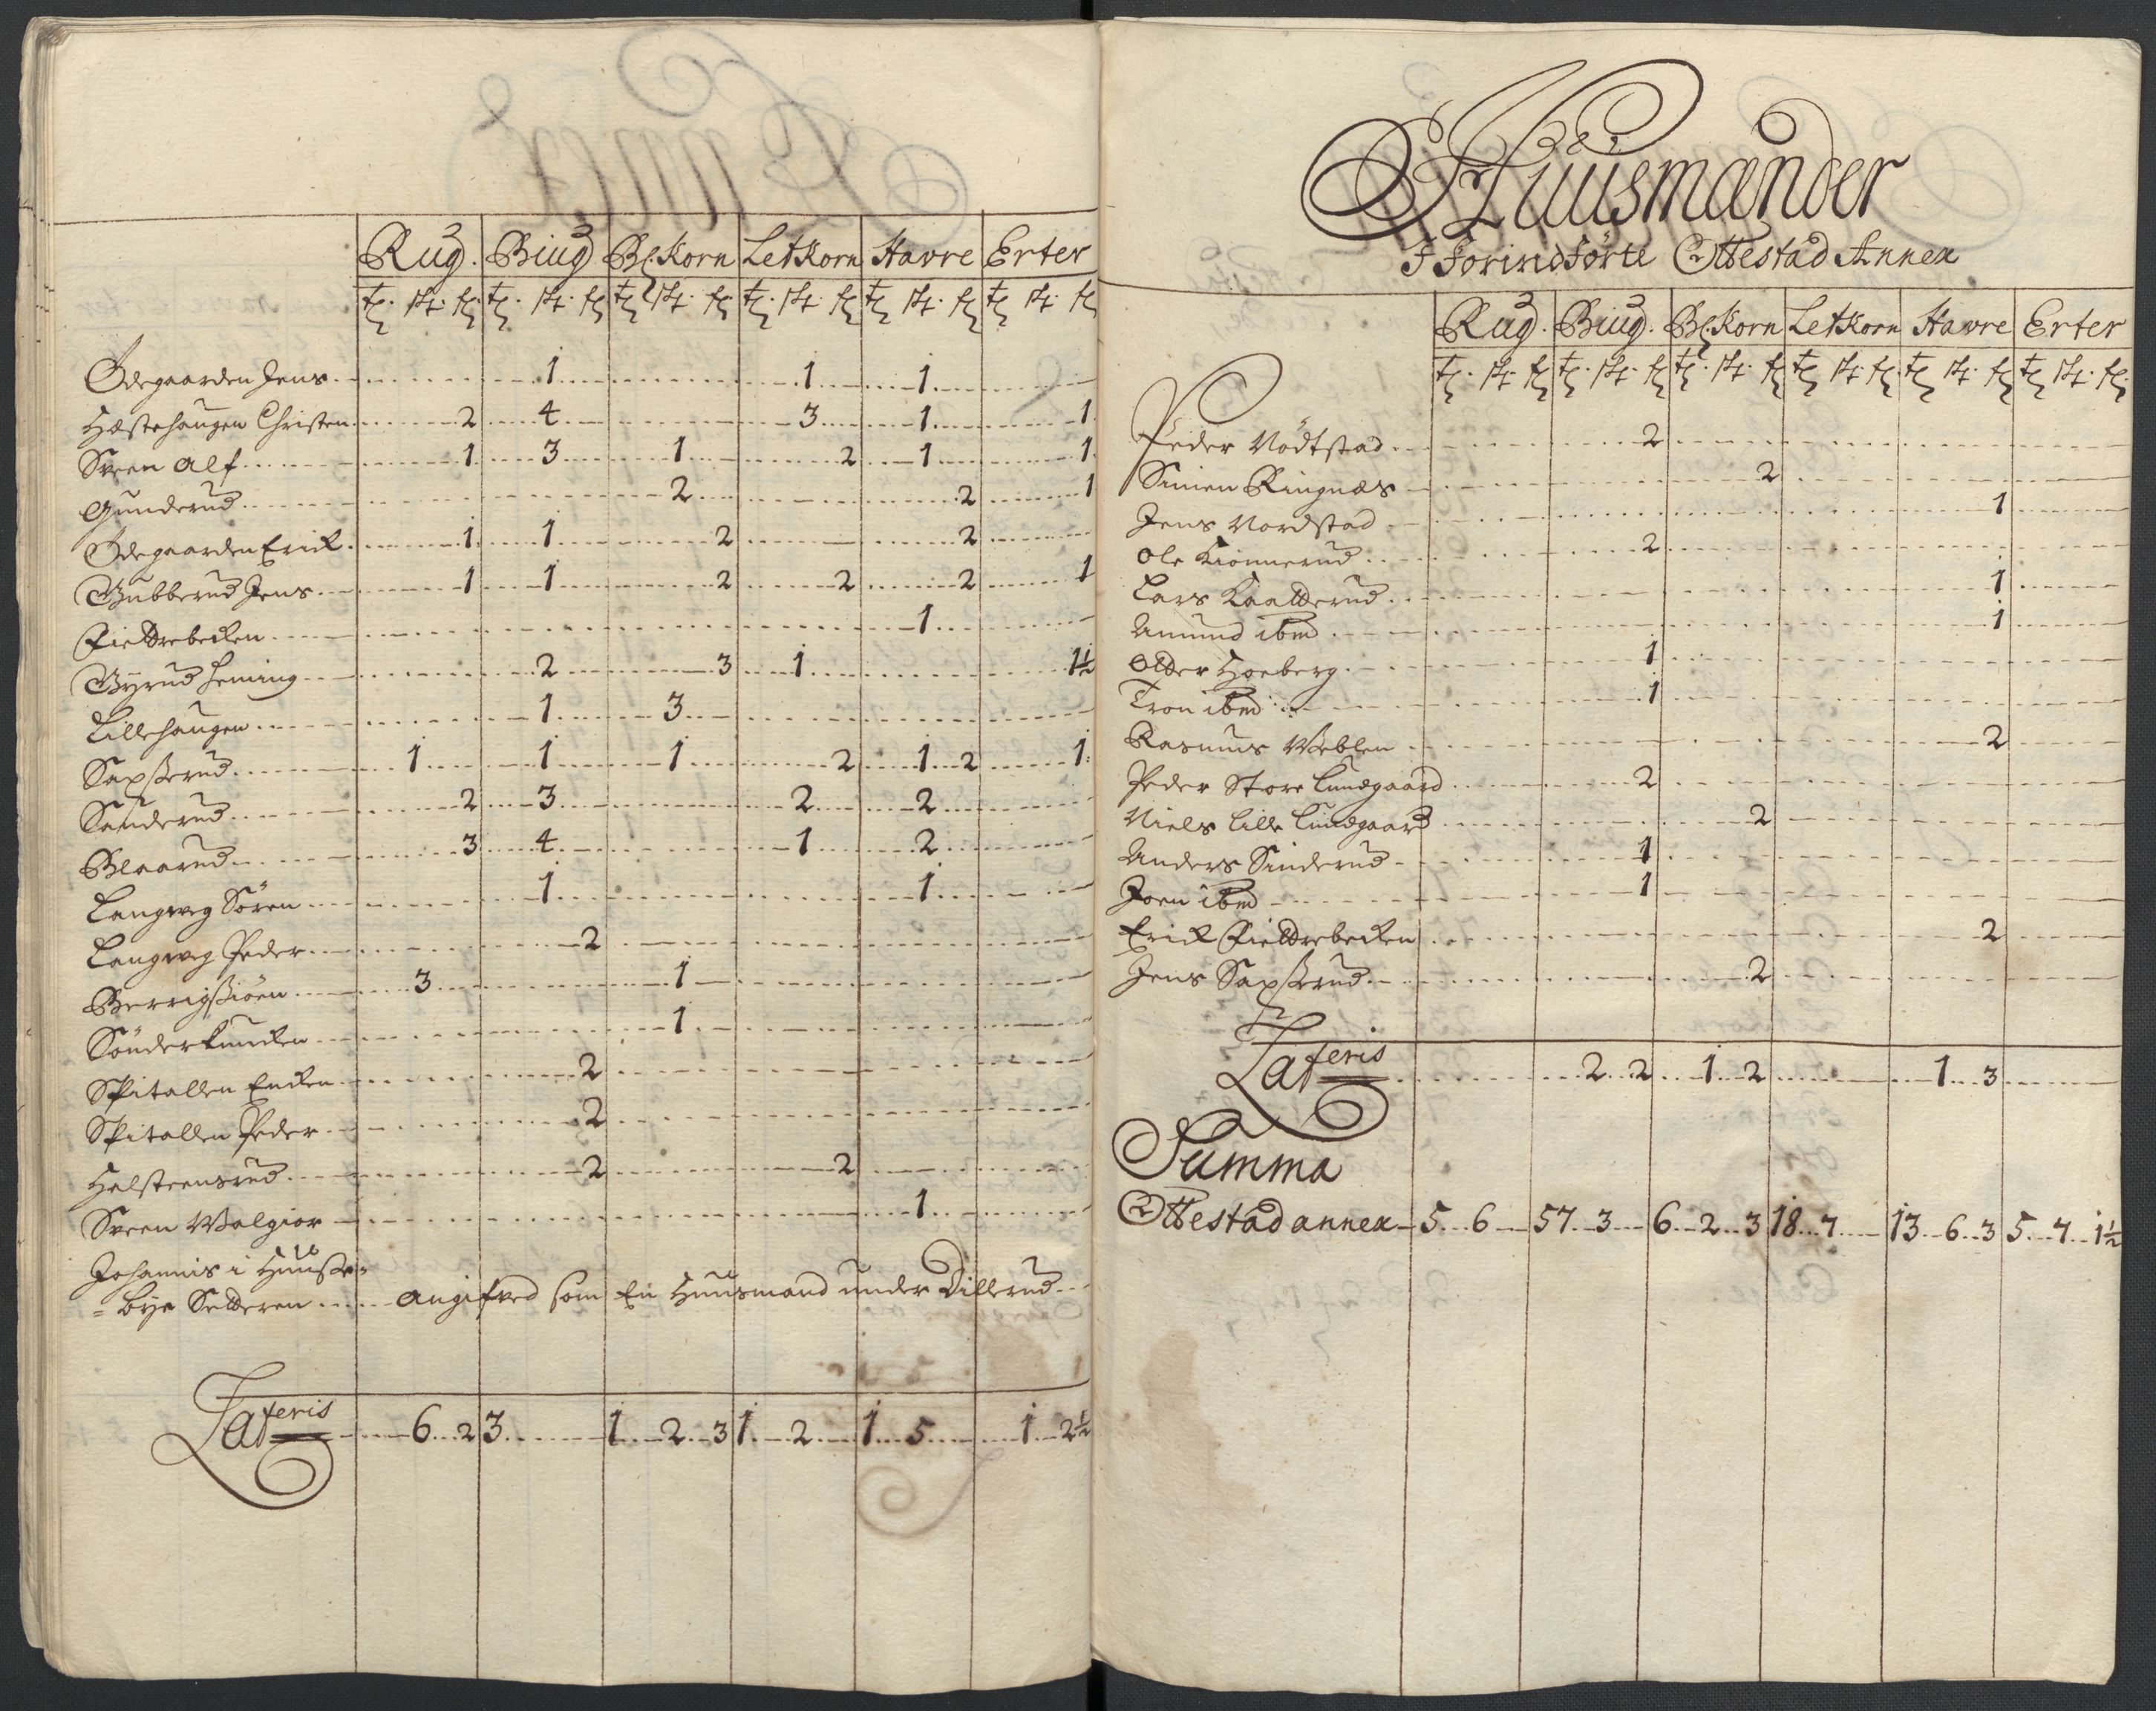 Rug. Biug Bl.korn Letkorn Havre Erter
Ødegaarden Jens 1 1 1
Hæstehaugen Christen 2 4 3 1 1
Sveen Alf 1 3 1 2 1 1
Gunderud 2 2 1
Ødegaarden Erick 1 1 2 2
Gubberud Jens 1 1 2 2 2 1
1
Gyrud Heming 2 3 1 1½
Lillehaugen 1 3
Sapsserud 1 1 1 2 1 2 1
Sanderud 2 3 2 2
Blaarud 3 4 1 2
Langweg Sören 1 1
Langweg Peder 2
3 1
Sönderlunden 1
Spitallen Enken 2
Spitallen Peder 2
Halsteensrud 2 2
Sveen 1
Johannis i Huusse-
= bye angifved som En Huusmand under Dillerud
Lateris 6 2 3 1 2 3 1 2 1 5 1 2½
Huusmænder
I Forindförte Ottestad Annex
Rug. Biug. Bl.korn Letkorn Havre Erter
Peder Nödtstad 2
Simen Ringnæs 2
Jens Nordstad 1
Ole Kiönnerud 2
Lars 1
Amund ibm 1
Hoeberg 1
Tron ibm 1
Rasmus Weblen 2
Peder Store Lundgaard 2
Niels Lille Lundgaard 2
Anders Sinderud 1
Joen ibm 1
Erick 2
Jens Sapsserud 2
Lateris 2 2 1 2 1 3
Summa
Ottestad annex 5 6 57 3 6 2 3 18 7 13 6 3 5 7 1½